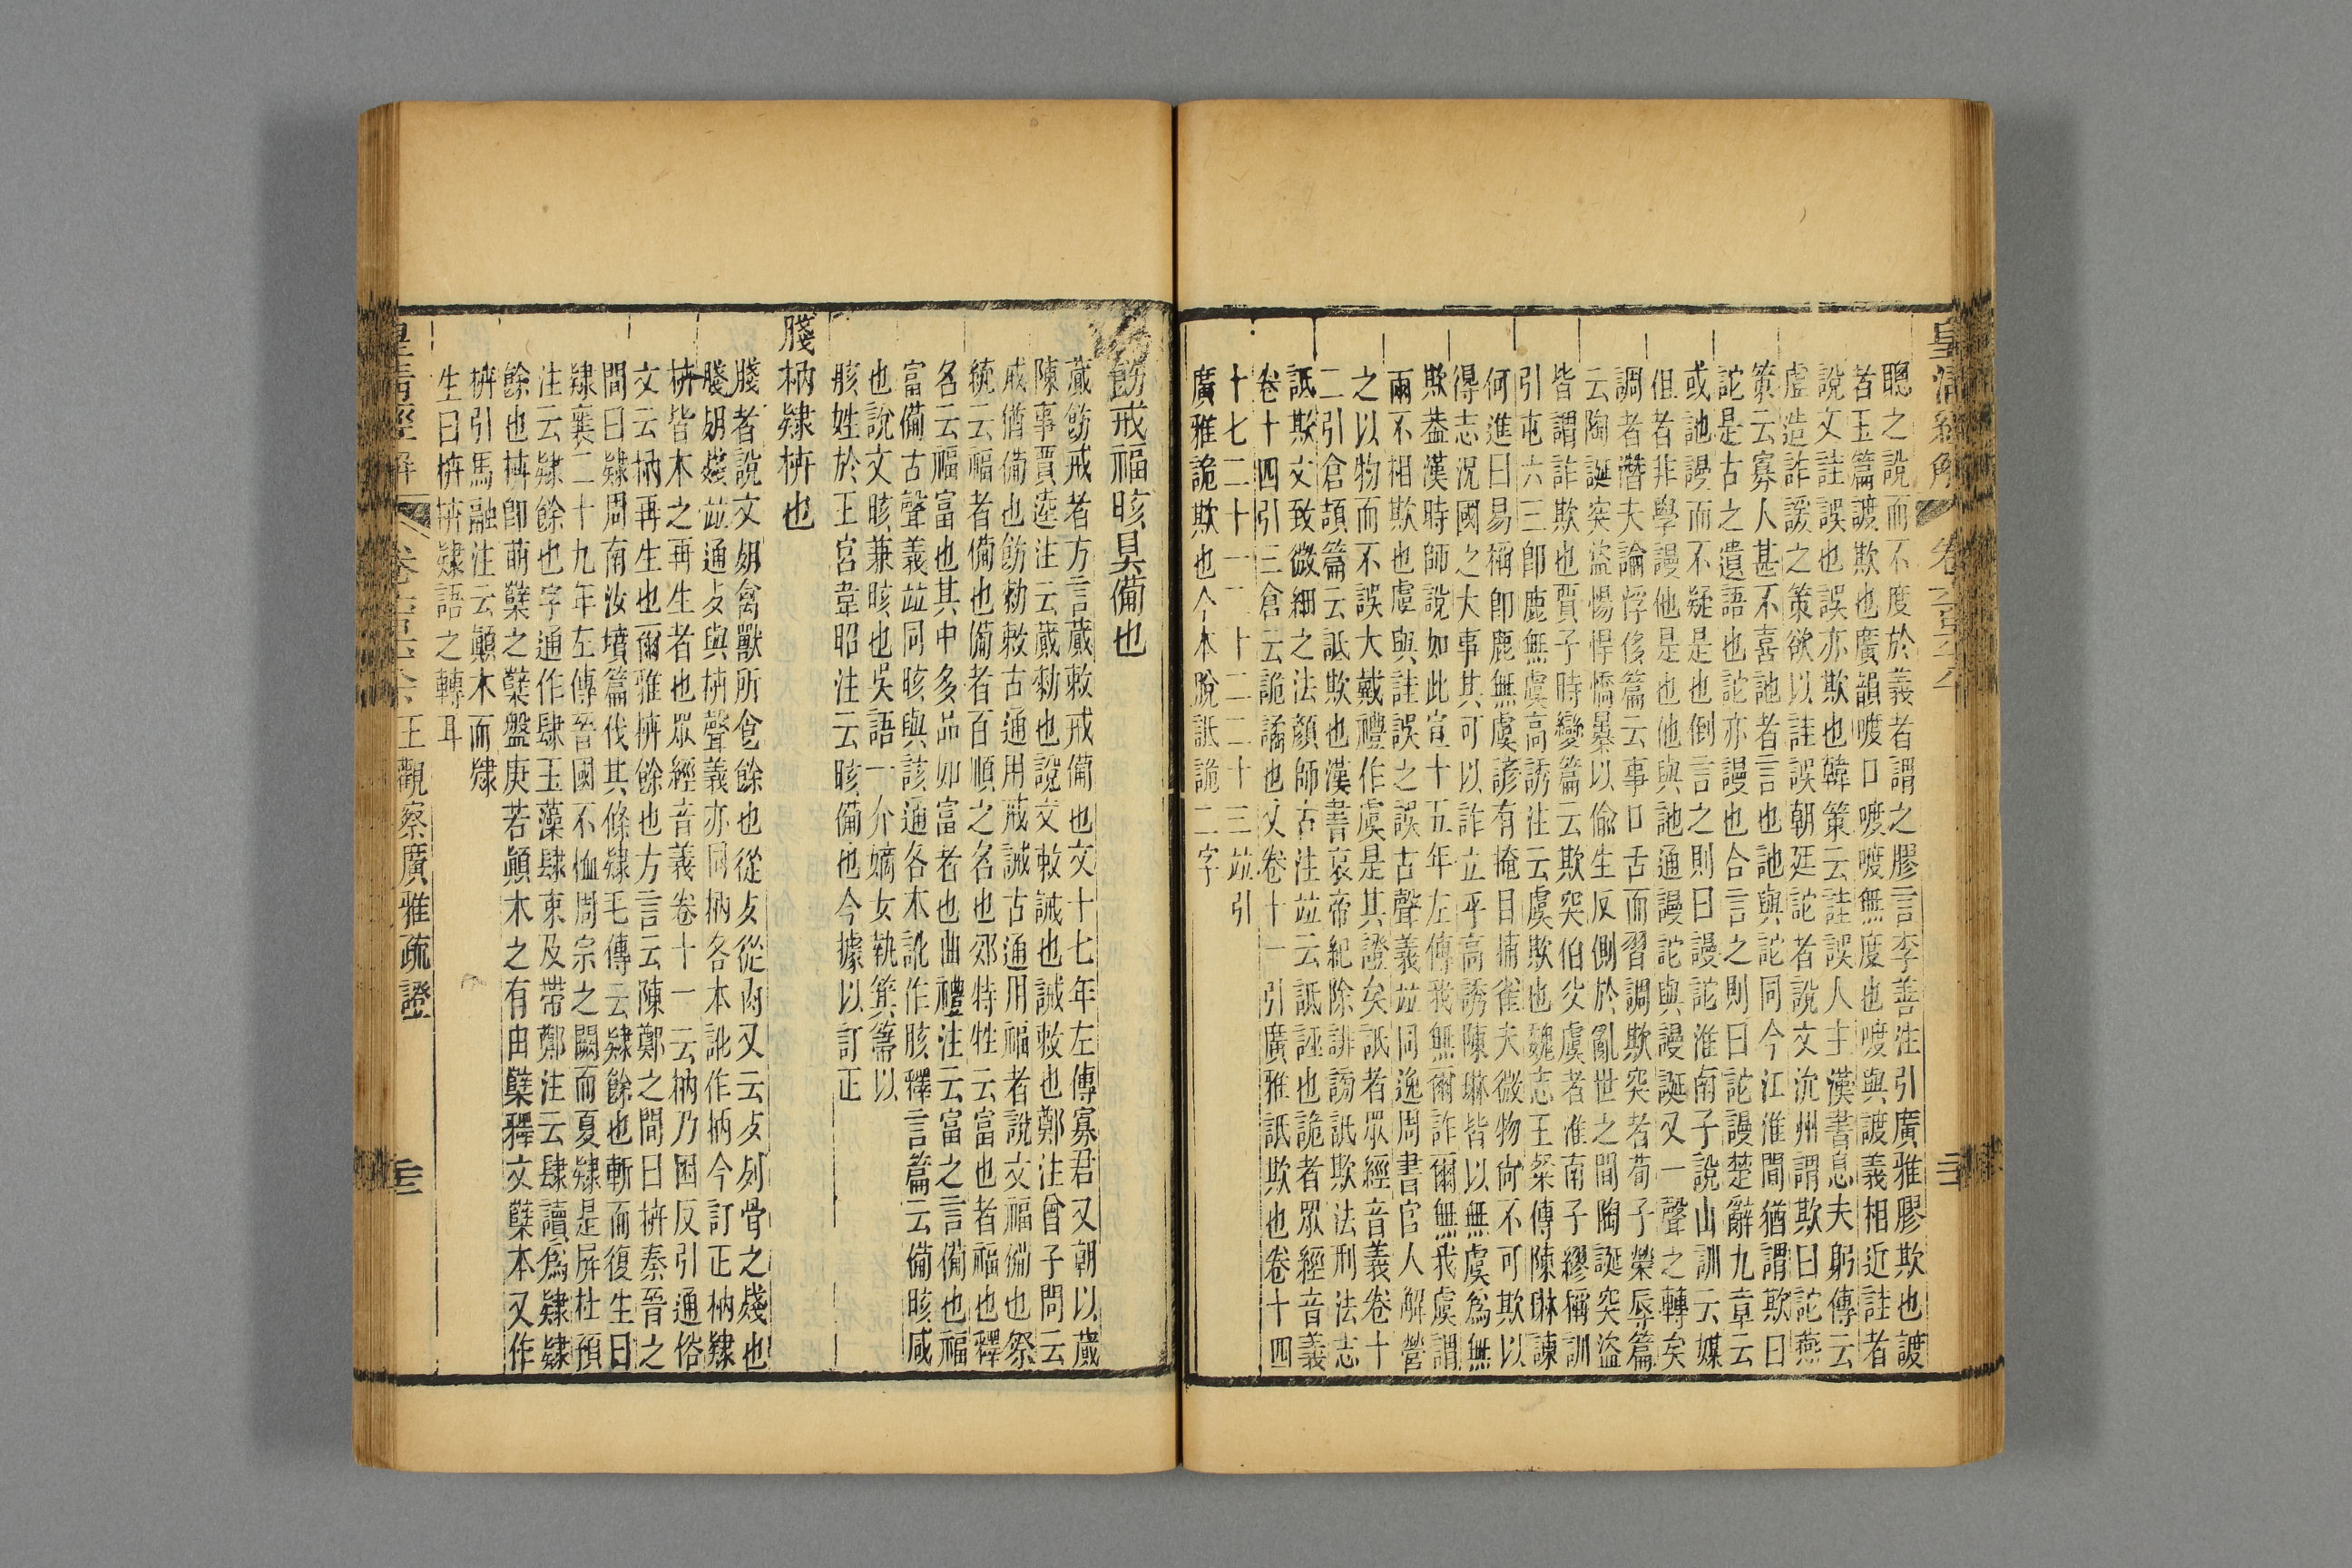 聰之說而不度於義者謂之膠言李善注引廣雅膠欺也謢
者玉篇謢欺也廣韻嚄口嚄嚄無度也嚄與謢義相近詿者
說文詿誤也誤亦欺也韓策云詿誤人主漢書息夫躬傳云
虛造詐諼之策欲以詿誤朝廷詑者說文沇州謂欺曰詑燕
策云寡人甚不喜訑者言也訑與詑同今江淮間猶謂欺曰
詑是古之遺語也詑亦謾也合言之則曰詑謾楚辭九章云
或訑謾而不疑是也倒言之則曰謾詑淮南子說山訓云媒
但者非學謾他是也他與訑通謾詑與謾誕又一聲之轉矣
調者潛夫論浮侈篇云事口舌而習調欺突者荀子榮辱篇
云陶誕突盜惕悍憍暴以偷生反側於亂世之間陶誕突盜
皆謂詐欺也賈子時變篇云欺突伯父虞者淮南子繆稱訓
引屯六三卽鹿無虞高誘注云虞欺也魏志王粲傳陳琳諫
何進曰易稱卽鹿無虞諺有掩目捕雀夫微物尙不可欺以
得志況國之大事其可以詐立乎高誘陳琳皆以無虞爲無
欺葢漢時師說如此宣十五年左傳我無爾詐爾無我虞謂
兩不相欺也虞與詿誤之誤古聲義竝同逸周書官人解營
之以物而不誤大戴禮作虞是其證矣詆者眾經音義卷十
二引倉頡篇云詆欺也漢書哀帝紀除誹謗詆欺法刑法志
詆欺文致微細之法顏師古注竝云詆誣也詭者眾經音義
卷十四引三倉云詭譎也又卷十一引廣雅詆欺也卷十四
十七二十一二十二二十三竝引
廣雅詭欺也今本脫詆詭二字
飭戒福晐具備也
蕆飭戒者方言蕆敕戒備也文十七年左傳寡君又朝以蕆
陳事賈逵注云蕆勑也說文敕誡也誡敕也鄭注曾子問云
戒猶備也飭勑敕古通用戒誡古通用福者說文福備也祭
統云福者備也備者百順之名也郊特牲云富也者福也釋
名云福富也其中多品如富者也曲禮注云富之言備也福
富備古聲義竝同晐與該通各本訛作胲釋言篇云備晐咸
也說文晐兼晐也吳語一介嫡女執箕箒以
胲姓於王宮韋昭注云晐備也今據以訂正
㱚枿㯕枿也
㱚者說文㱚禽獸所食餘也從歺從肉又云歺列骨之殘也
㱚竝通歺與枿聲義亦同枿各本訛作柄今訂正枿㯕
枿皆木之再生者也眾經音義卷十一云枿乃困反引通俗
文云枿再生也爾雅枿餘也方言云陳鄭之間曰枿秦晉之
間曰肄周南汝墳篇伐其條肄毛傳云肄餘也斬而復生曰
肄襄二十九年左傳晉國不恤周宗之闕而夏肄是屏杜預
注云肄餘也字通作肆玉藻肆束及帶鄭注云肆讀爲肄肄
餘也枿卽萌櫱之櫱盤庚若顚木之有由櫱釋文櫱本又作
枿引馬融注云顚木而肄
生曰枿枿肄語之轉耳
王觀察廣雅疏證